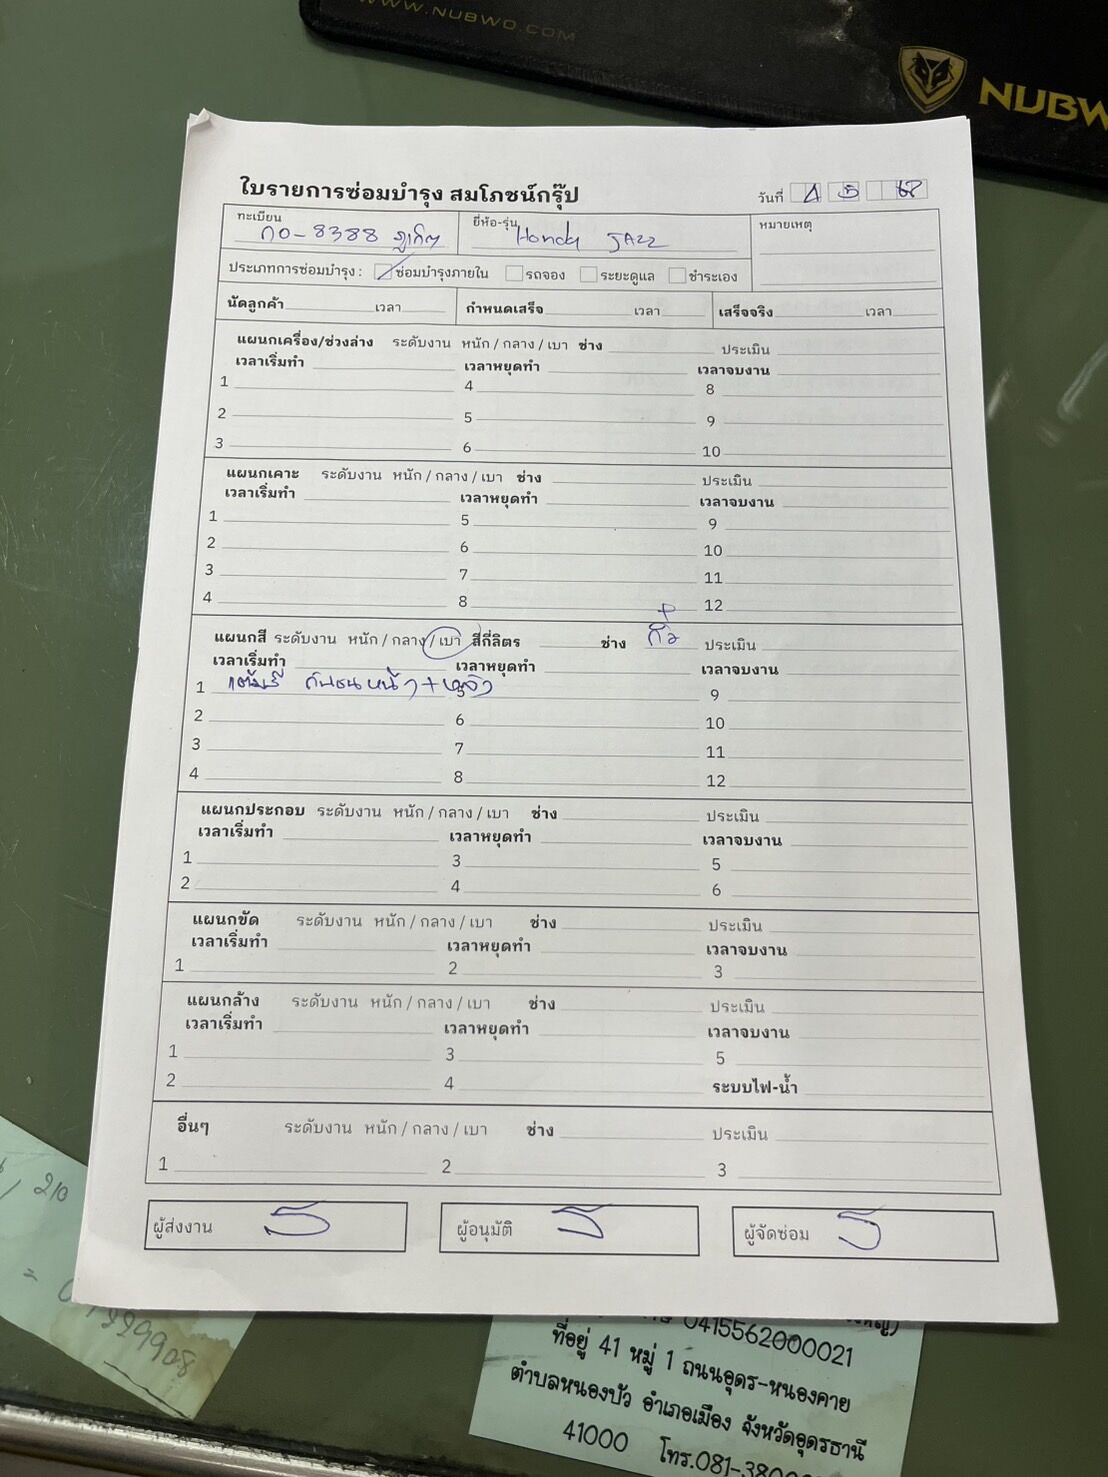 WWW.NUBWO.COM
NUBWO
ใบรายการซ่อมบำรุง สมโภชน์กรุ๊ป
วันที่ 4 5 68
ทะเบียน กอ-8388 ภูเก็ต
ยี่ห้อ-รุ่น Honda JAZZ
หมายเหตุ
ประเภทการซ่อมบำรุง : ซ่อมบำรุงภายใน รถจอง ระยะดูแล ชำระเอง
นัดลูกค้า เวลา กำหนดเสร็จ เวลา เสร็จจริง เวลา
แผนกเครื่อง/ช่วงล่าง ระดับงาน หนัก / กลาง / เบา ช่าง ประเมิน
เวลาเริ่มทำ เวลาหยุดทำ เวลาจบงาน
1 4 8
2 5 9
3 6 10
แผนกเคาะ ระดับงาน หนัก / กลาง / เบา ช่าง ประเมิน
เวลาเริ่มทำ เวลาหยุดทำ เวลาจบงาน
1 5 9
2 6 10
3 7 11
4 8 12
แผนกสี ระดับงาน หนัก / กลาง / เบา สีกี่ลิตร ช่าง ประเมิน
เวลาเริ่มทำ เวลาหยุดทำ เวลาจบงาน
1 แต้มสี กันชนหน้า+หลัง 9
2 6 10
3 7 11
4 8 12
แผนกประกอบ ระดับงาน หนัก / กลาง / เบา ช่าง ประเมิน
เวลาเริ่มทำ เวลาหยุดทำ เวลาจบงาน
1 3 5
2 4 6
แผนกขัด ระดับงาน หนัก / กลาง / เบา ช่าง ประเมิน
เวลาเริ่มทำ เวลาหยุดทำ เวลาจบงาน
1 2 3
แผนกล้าง ระดับงาน หนัก / กลาง / เบา ช่าง ประเมิน
เวลาเริ่มทำ เวลาหยุดทำ เวลาจบงาน
1 3 5
2 4 ระบบไฟ-น้ำ
อื่นๆ ระดับงาน หนัก / กลาง / เบา ช่าง ประเมิน
1 2 3
ผู้ส่งงาน ผู้อนุมัติ ผู้จัดซ่อม
0415562000021
ที่อยู่ 41 หมู่ 1 ถนนอุดร-หนองคาย
ตำบลหนองบัว อำเภอเมือง จังหวัดอุดรธานี
41000 โทร.081-380